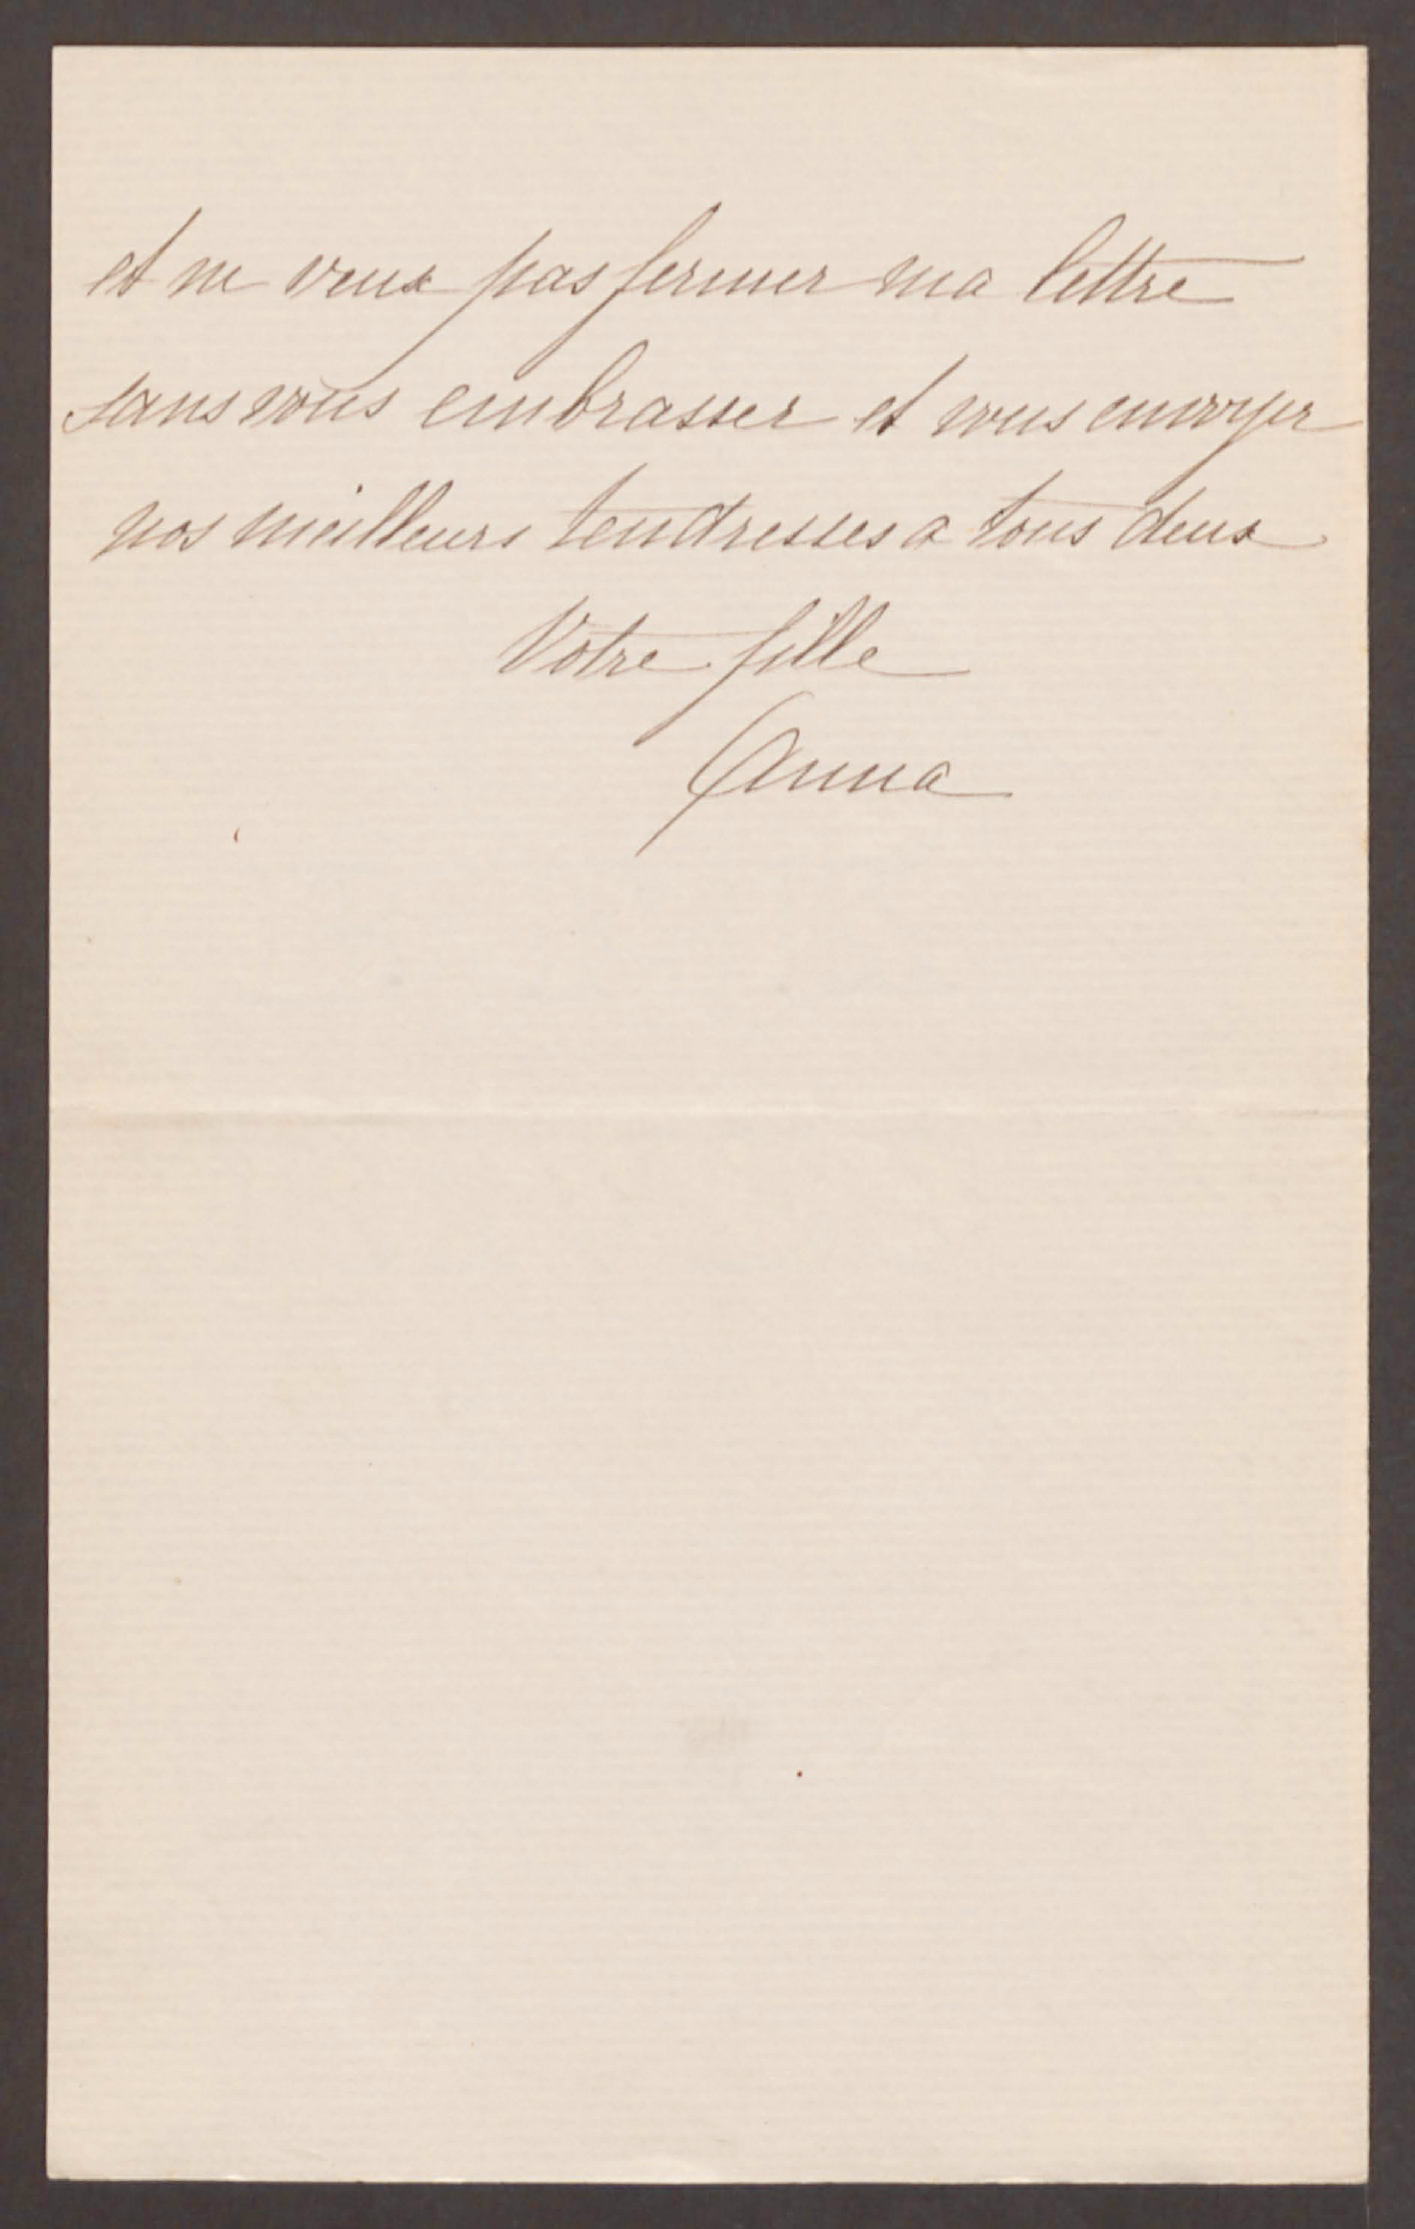 et ne veux pas fermer ma lettre
sans vous embrasser et vous envoyer
nos meilleurs tendresses a tous deux
Votre fille
Anna